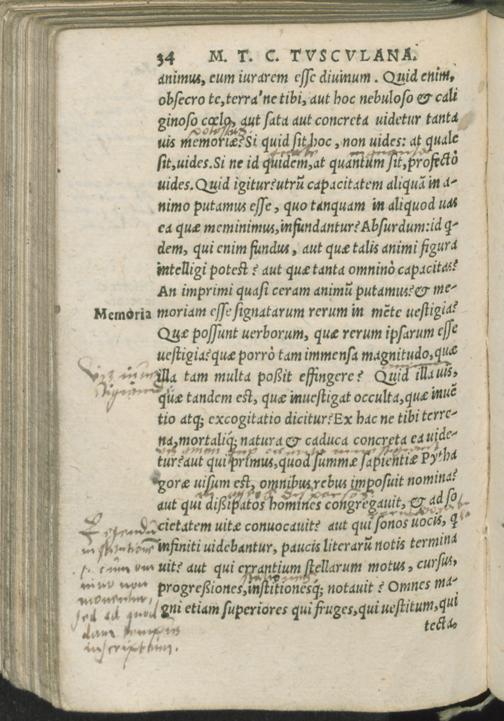 34 M. T. C. TVSCVLANA.
animus, eum iurarem esse diuinum. Quid enim,
obsecro te, terra'ne tibi, aut hoc nebuloso & cali
ginoso cœlo, aut sata aut concreta uidetur tanta
uis memoriæ? Si quid sit hoc, non uides: at quale
sit, uides. Si ne id quidem, at quantum sit, profectò
uides. Quid igitur? utrũ capacitatem aliquã in a-
nimo putamus esse, quo tanquam in aliquod uas
ea quæ meminimus, infundantur? Absurdum: id q-
dem, qui enim fundus, aut quæ talis animi figura
intelligi potest? aut quæ tanta omninò capacitas?
An imprimi quasi ceram animũ putamus? & me-
Memoria moriam esse signatarum rerum in mẽte uestigia?
Quæ possunt uerborum, quæ rerum ipsarum esse
uestigia? quæ porrò tam immensa magnitudo, quæ
illa tam multa poßit effingere? Quid illa uis,
quæ tandem est, quæ inuestigat occulta, quæ inuẽ
tio atq; excogitatio dicitur? Ex hac ne tibi terre-
na, mortaliq; natura & caduca concreta ea uide-
tur? aut qui primus, quod summæ sapientiæ Pytha
goræ uisum est, omnibus rebus imposuit nomina?
aut qui dißipatos homines congregauit, & ad so
cietatem uitæ conuocauit? aut qui sonos uocis, q
infiniti uidebantur, paucis literarũ notis termina
uit? aut qui errantium stellarum motus, cursus,
progreßiones, institionesq; notauit? Omnes ma-
gni etiam superiores qui fruges, qui uestitum, qui
tecta,
non
sed ad quod
dam tempus
inscriptum.